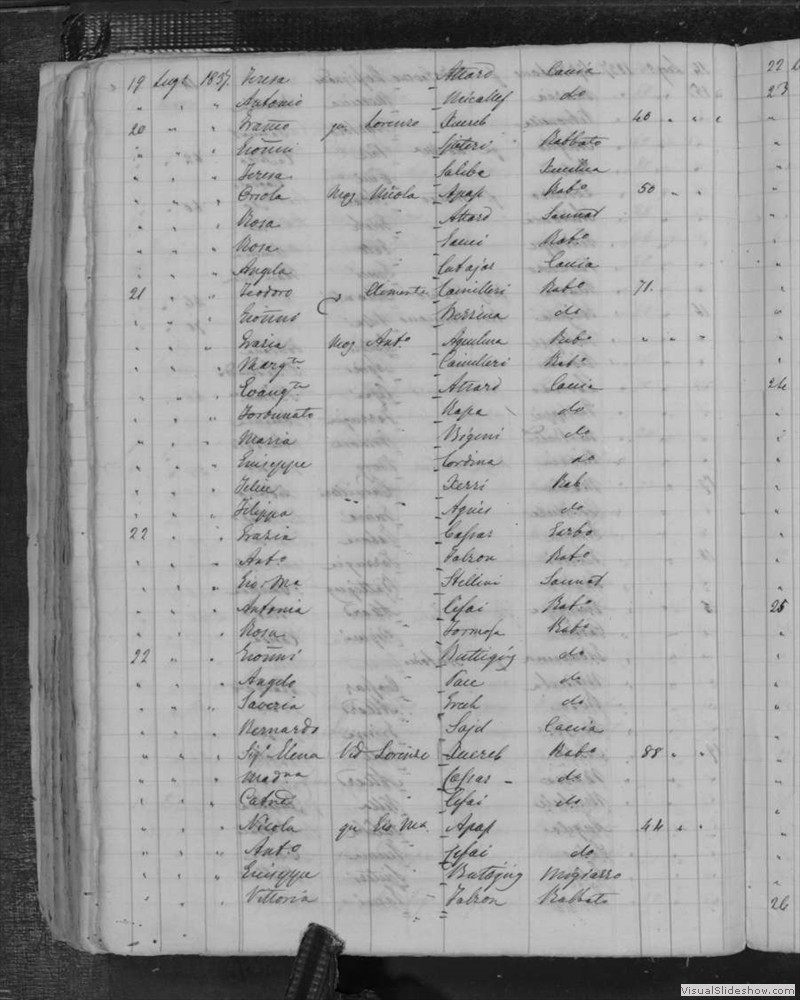 22
19 Lugo 1837. Teresa Attard Caccia
" " " Antonio Micallef do 23
20 " " Grazio qm Lorenzo Xuereb 40 " "
" " " Giovni Spiteri Rabbato
" " " Teresa Saliba Xeuchia
" " " Orsola Mog Nicola Apap Rabo 50 " "
" " " Rosa Attard Sannat
" " " Rosa Rabo
" " " Angela Cutajar Caccia
21 " " Teodoro Clemente Camilleri Rabo 71.
" " " Giovni Bezzina do
" " " Grazia Mog Anto Aquilina Rabo " " "
" " " Margta Camilleri Rabo
" " " Evangta Attard Caccia 24
" " " Fortunato Rapa do
" " " Maria Bigeni do
" " " Giuseppe Cordina do
" " " Felice Xerri Rab
" " " Filippa Agius do
22 " " Grazia Cassar Garbo
" " " Anto Falzon Rabo
" " " Gio Ma Stellini Sannat
" " " Antonia Cefai Rabo 25
" " " Rosa Formosa Rabo
22 " " Giovni Buttigieg do
" " " Angelo Pace do
" " " Saveria Grech do
" " " Bernardo Sajd Caccia
" " " Siga Elena Vid Lorenzo Xuereb Rabo 88 " "
" " " Madna Cassar - do
" " " Catna Cefai do
" " " Nicola qm Gio Ma Apap 44 " "
" " " Anto Cefai do
" " " Giuseppe Buttigieg Migiarro
" " " Vittoria Falzon Rabbato 26
VisualSlideshow.com